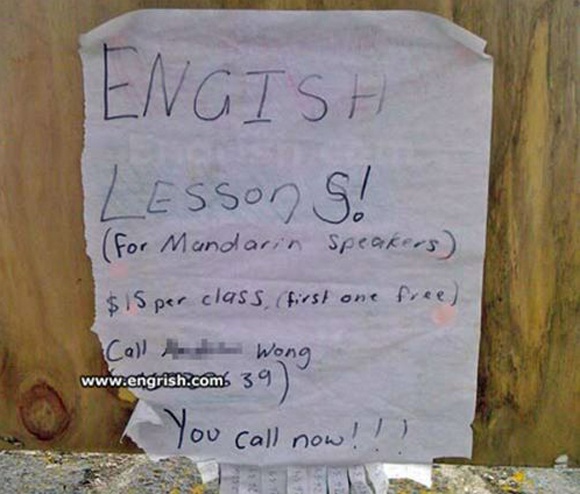 ENGISH
LESSONS!
(for Mandarin speakers)
$15 per class. (first one free)
Call Wong
www.engrish.com 39)
You call now!!!